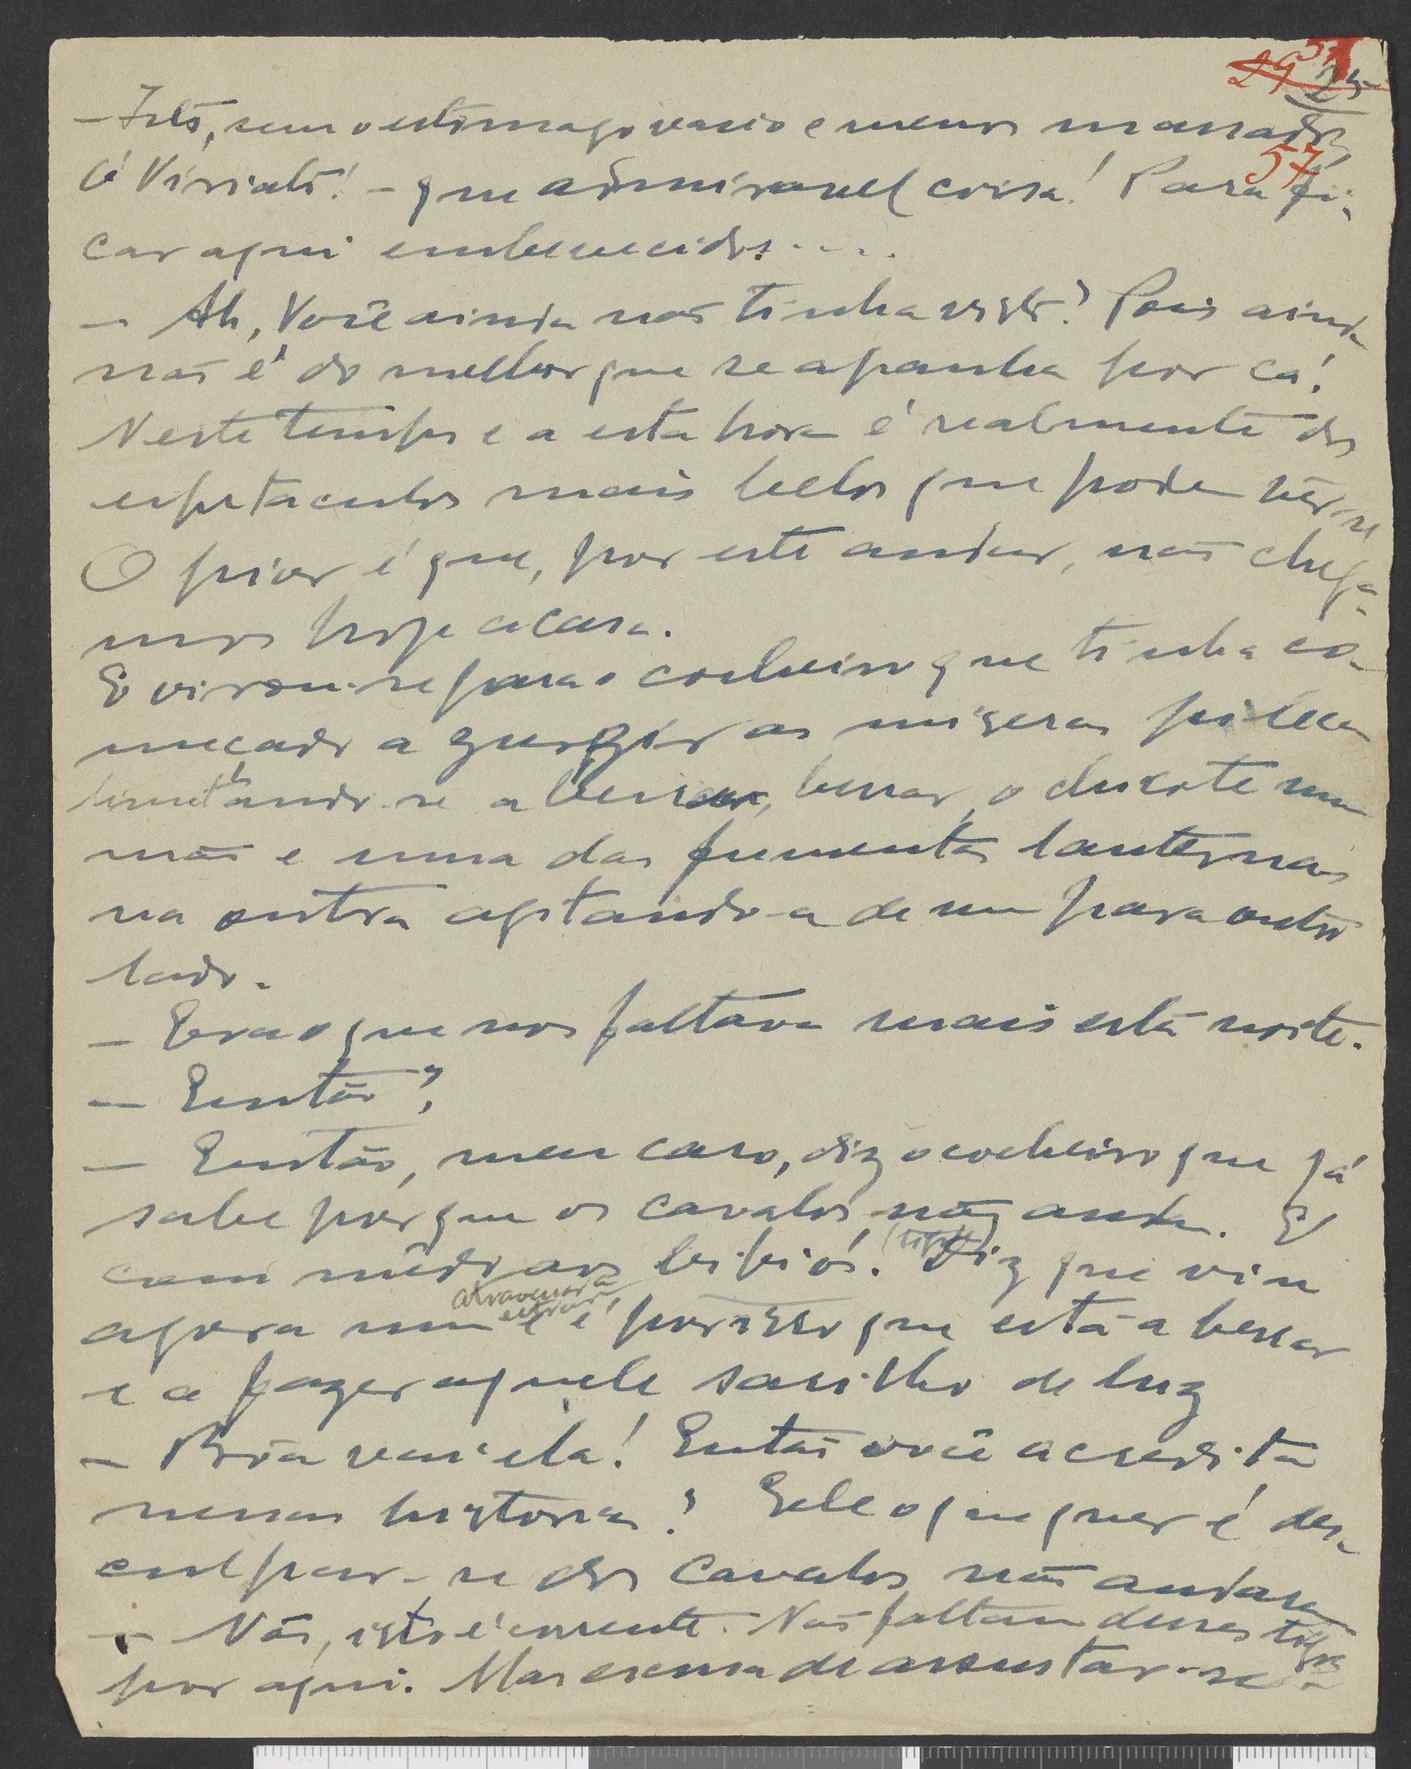 29 57 25
— Isto, sem o estomago vasio e menos massado,
57
ó Viriato! — que admiravel coisa! Para fi-
car aqui embevecido.....
— Ah, Você ainda não tinha visto? Pois ainda
não é do melhor que se apanha por cá!
Neste tempo e a esta hora é realmente dos
espetaculos mais belos que podem vêr-se
O pior é que, por este andar, não chega-
mos hoje a casa.
E virou-se para o cocheiro que tinha co-
meçado a zurzir as miseras pilecas
limitando-se a berrar, berrar, o chicote numa
mão e uma das fumentas lanternas
na outra agitando-a de um para outro
lado.
— Era o que nos faltava mais esta noite.
— Então?
— Então, meu caro, diz o cocheiro que já
sabe porque os cavalos não andam. E
com mêdo aos bibiós! (tigre) Diz que viu
atravessar a estrada
agora um e é por isso que está a berrar
e a fazer aquele sarilho de luz
— Bôa vai ela! Então você acredita
nessas historias? Ele o que quer é des-
culpar-se dos cavalos não andarem
— Não, isto é corrente. Não faltam desses tigres
por aqui. Mas escusa de assustar-se.